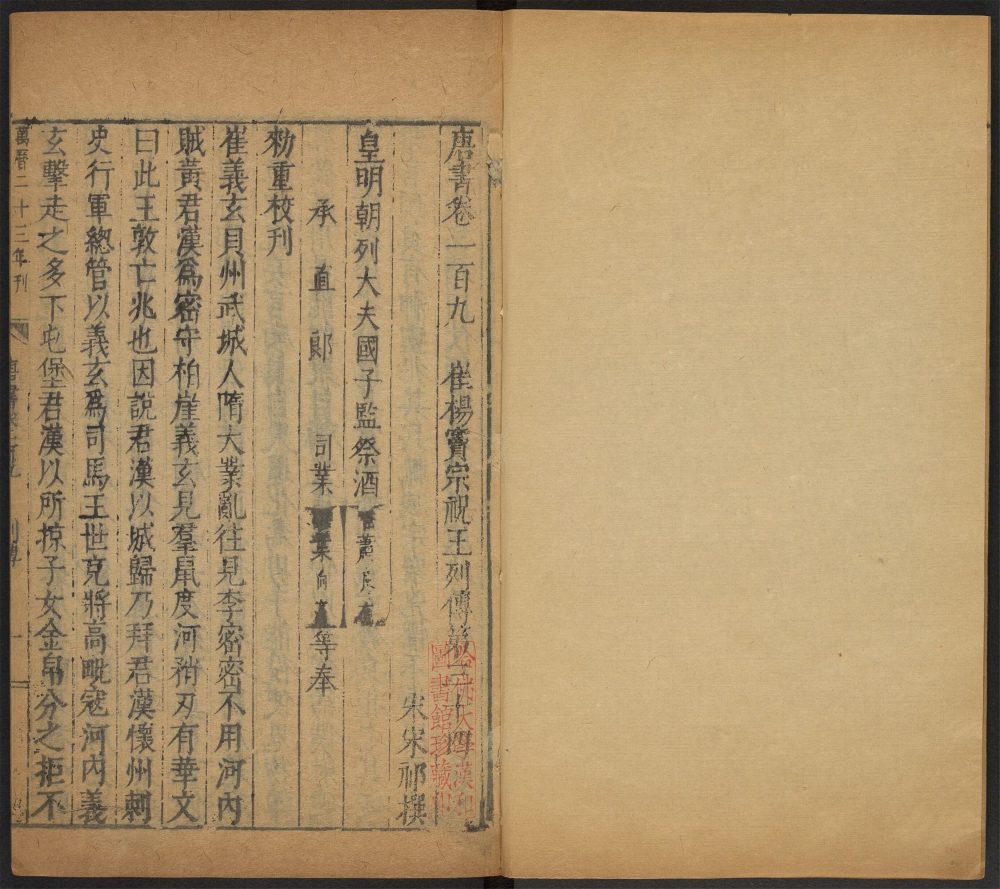 唐書卷一百九 崔楊竇宗祝王列傳第三十四
宋宋祁撰
皇明朝列大夫國子監祭酒蕭良有
承直郎司業葉向高等奉
勑重校刊
崔義玄貝州武城人隋大業亂往見李密密不用河內
賊黃君漢爲密守柏崖義玄見羣鼠度河矟刃有華文
曰此王敦亡兆也因說君漢以城歸乃拜君漢懷州刺
史行軍總管以義玄爲司馬王世充將高毗寇河內義
玄擊走之多下屯堡君漢以所掠子女金帛分之拒不
萬曆二十三年刊
唐書卷一百九 列傳 一
哈佛大學漢和
圖書館珍藏印